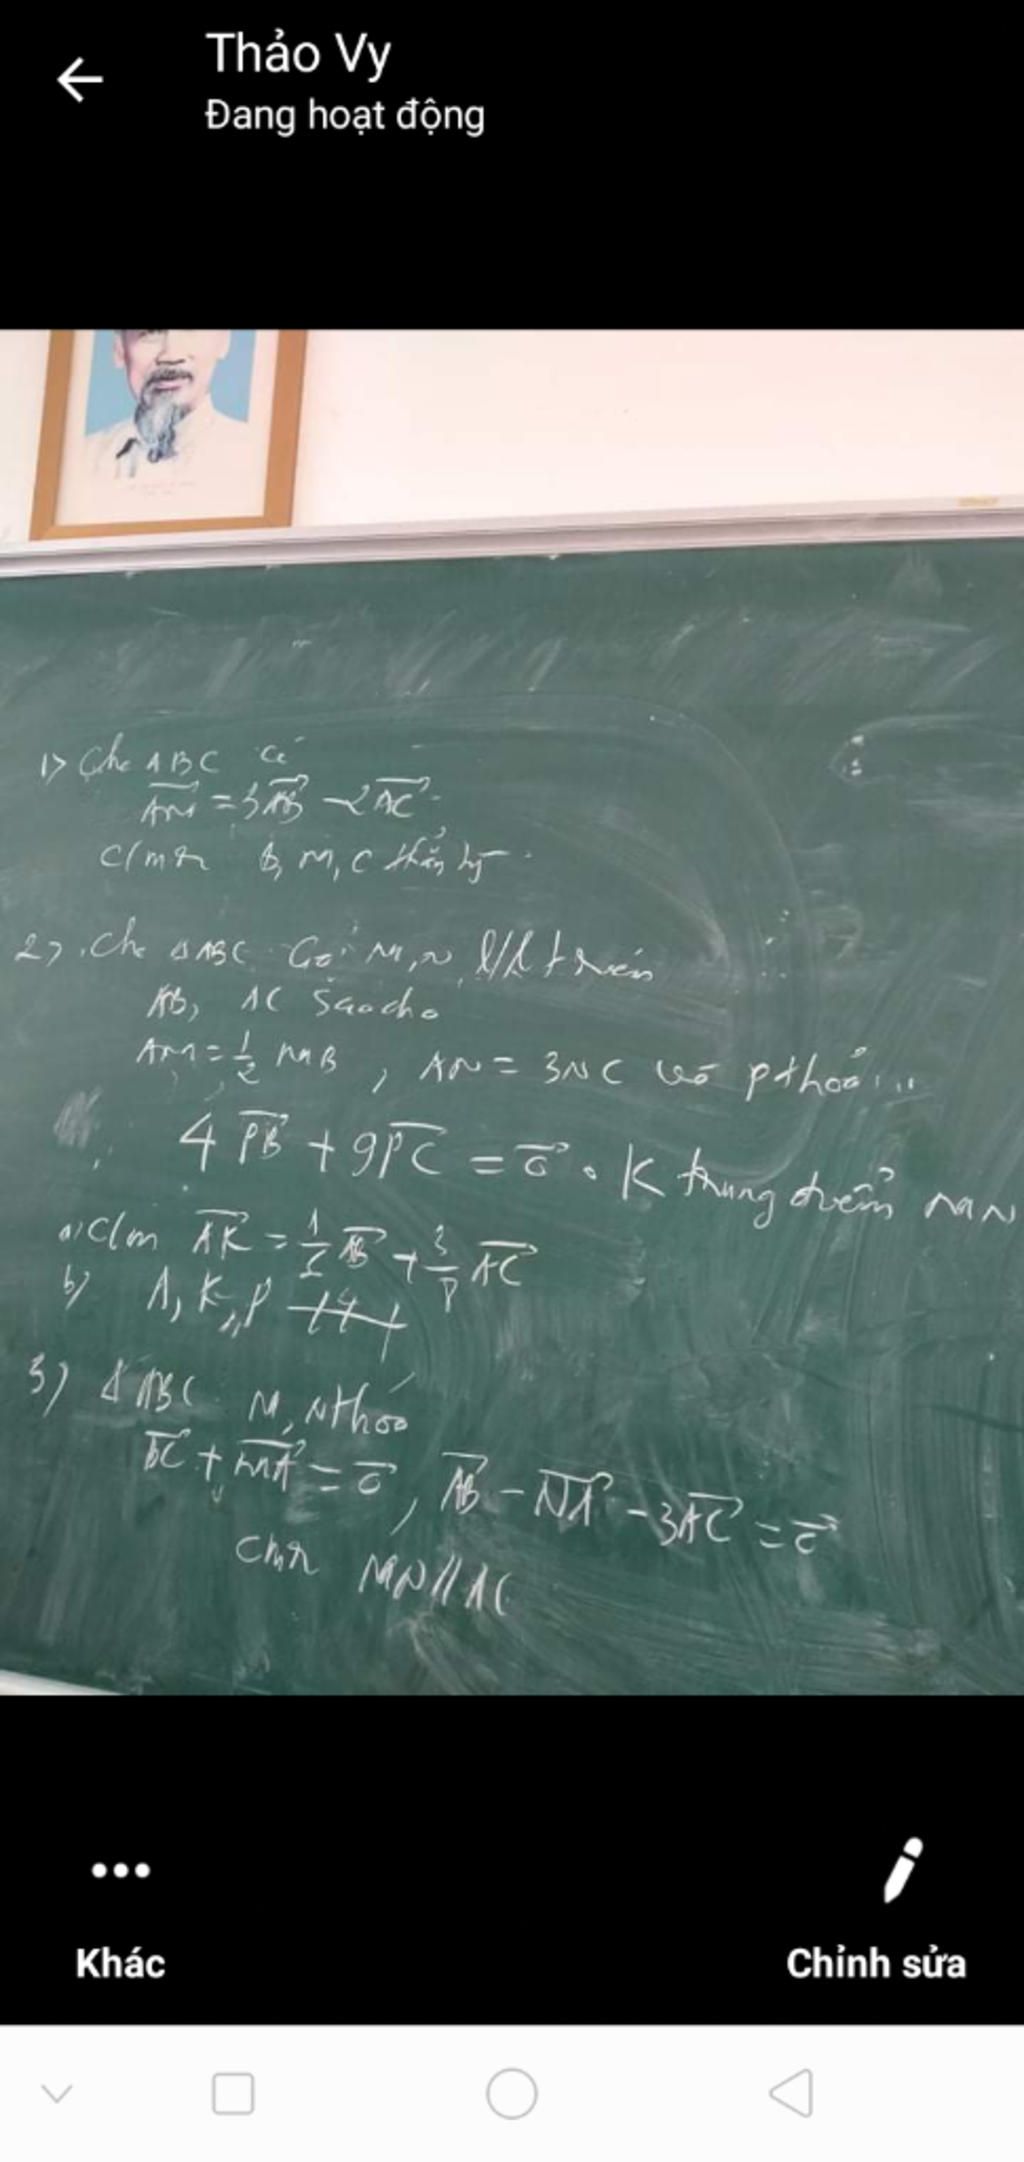 Thảo Vy
Đang hoạt động
1) Cho ABC có
AM = 3AB - 2AC
C/mr B, M, C thẳng
2) Cho ΔABC Gọi M, N trên
AB, AC sao cho
AM = 1/2 MB, AN = 3NC và P thoả
4PB + 9PC = 0. K trung điểm MN
a) C/m AK = 1/6 AB + 3/8 AC
b) A, K, P
3) ΔABC M, N thoả
BC + MA = 0, AB - NA - 3AC = 0
cmr MN//AC
Khác
Chỉnh sửa